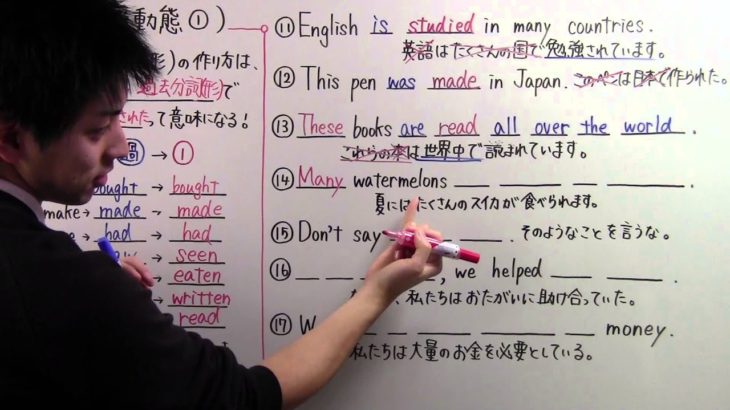 動態①)
形)の作り方は、
過去分詞形で
されたって意味になる!
過 → ①
bought → bought
make → made → made
had → had
seen
eaten
written
read
⑪ English is studied in many countries.
英語はたくさんの国で勉強されています。
⑫ This pen was made in Japan. このペンは日本で作られた。
⑬ These books are read all over the world.
これらの本は世界中で読まれています。
⑭ Many watermelons
夏にはたくさんのスイカが食べられます。
⑮ Don't say . そのようなことを言うな。
⑯ , we helped .
、私たちはおたがいに助け合っていた。
⑰ W money.
私たちは大量のお金を必要としている。